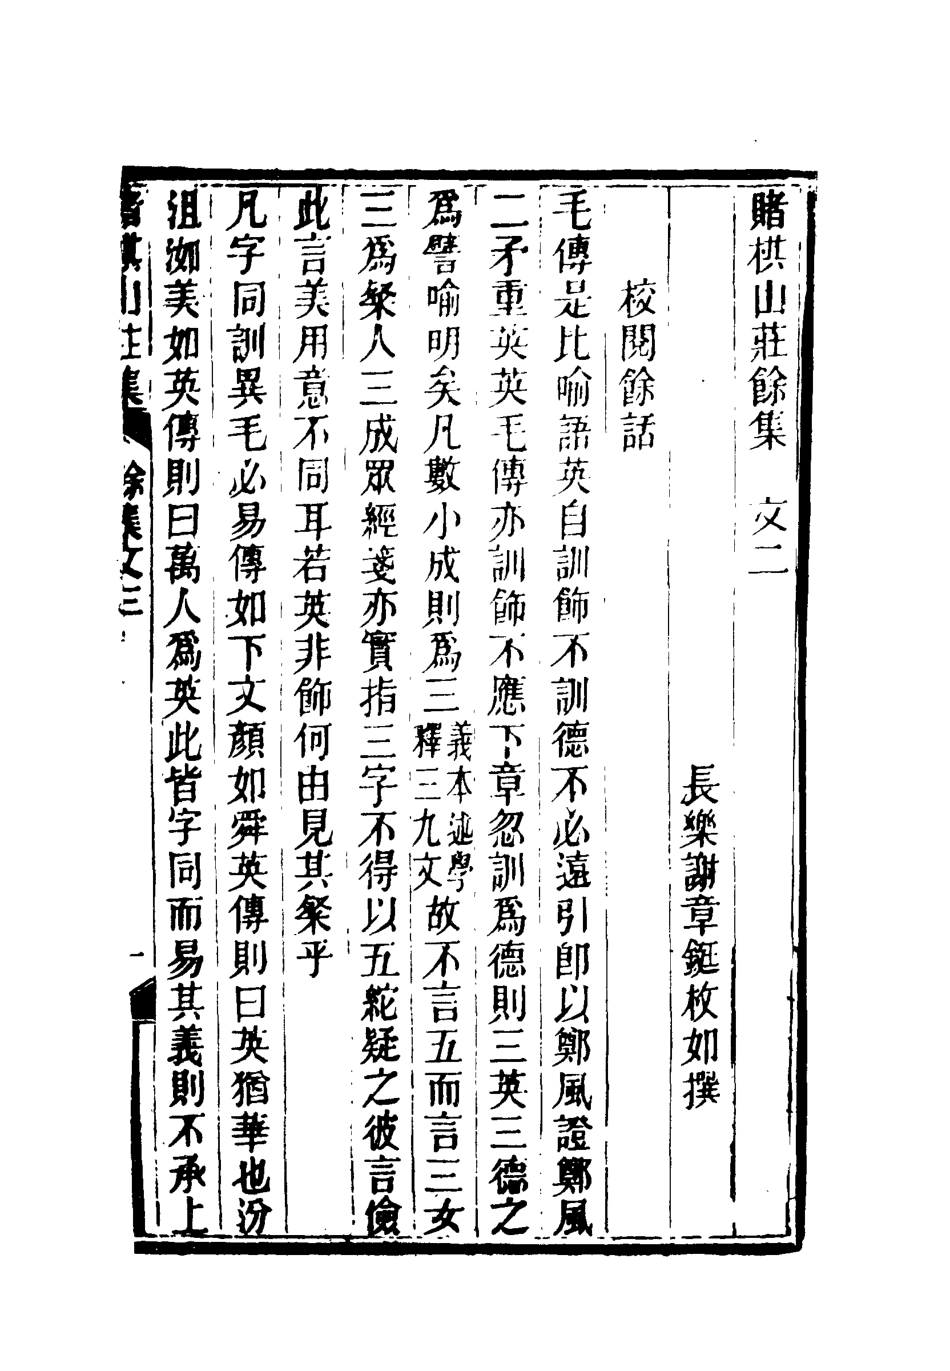 賭棋山莊餘集　文二
長樂謝章鋌枚如撰
校閱餘話
毛傳是比喻語英自訓飾不訓德不必遠引卽以鄭風證鄭風
二矛重英英毛傳亦訓飾不應下章忽訓爲德則三英三德之
爲譬喻明矣凡數小成則爲三義本述學釋三九文故不言五而言三女
三爲粲人三成眾經箋亦實指三字不得以五紽疑之彼言儉
此言美用意不同耳若英非飾何由見其粲乎
凡字同訓異毛必易傳如下文顏如舜英傳則曰英猶華也汾
沮洳美如英傳則曰萬人爲英此皆字同而易其義則不承上
賭棋山莊集　餘集文三　一